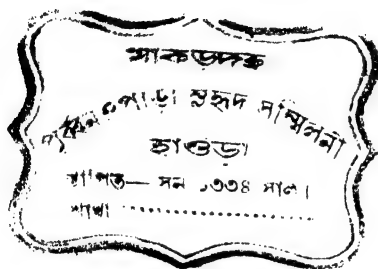 মাকড়দহ
পূর্ব্বান্নপাড়া সুহৃদ সম্মিলনী
হাওড়া
স্থাপিত— সন ১৩৩৪ সাল।
শাখা ....................